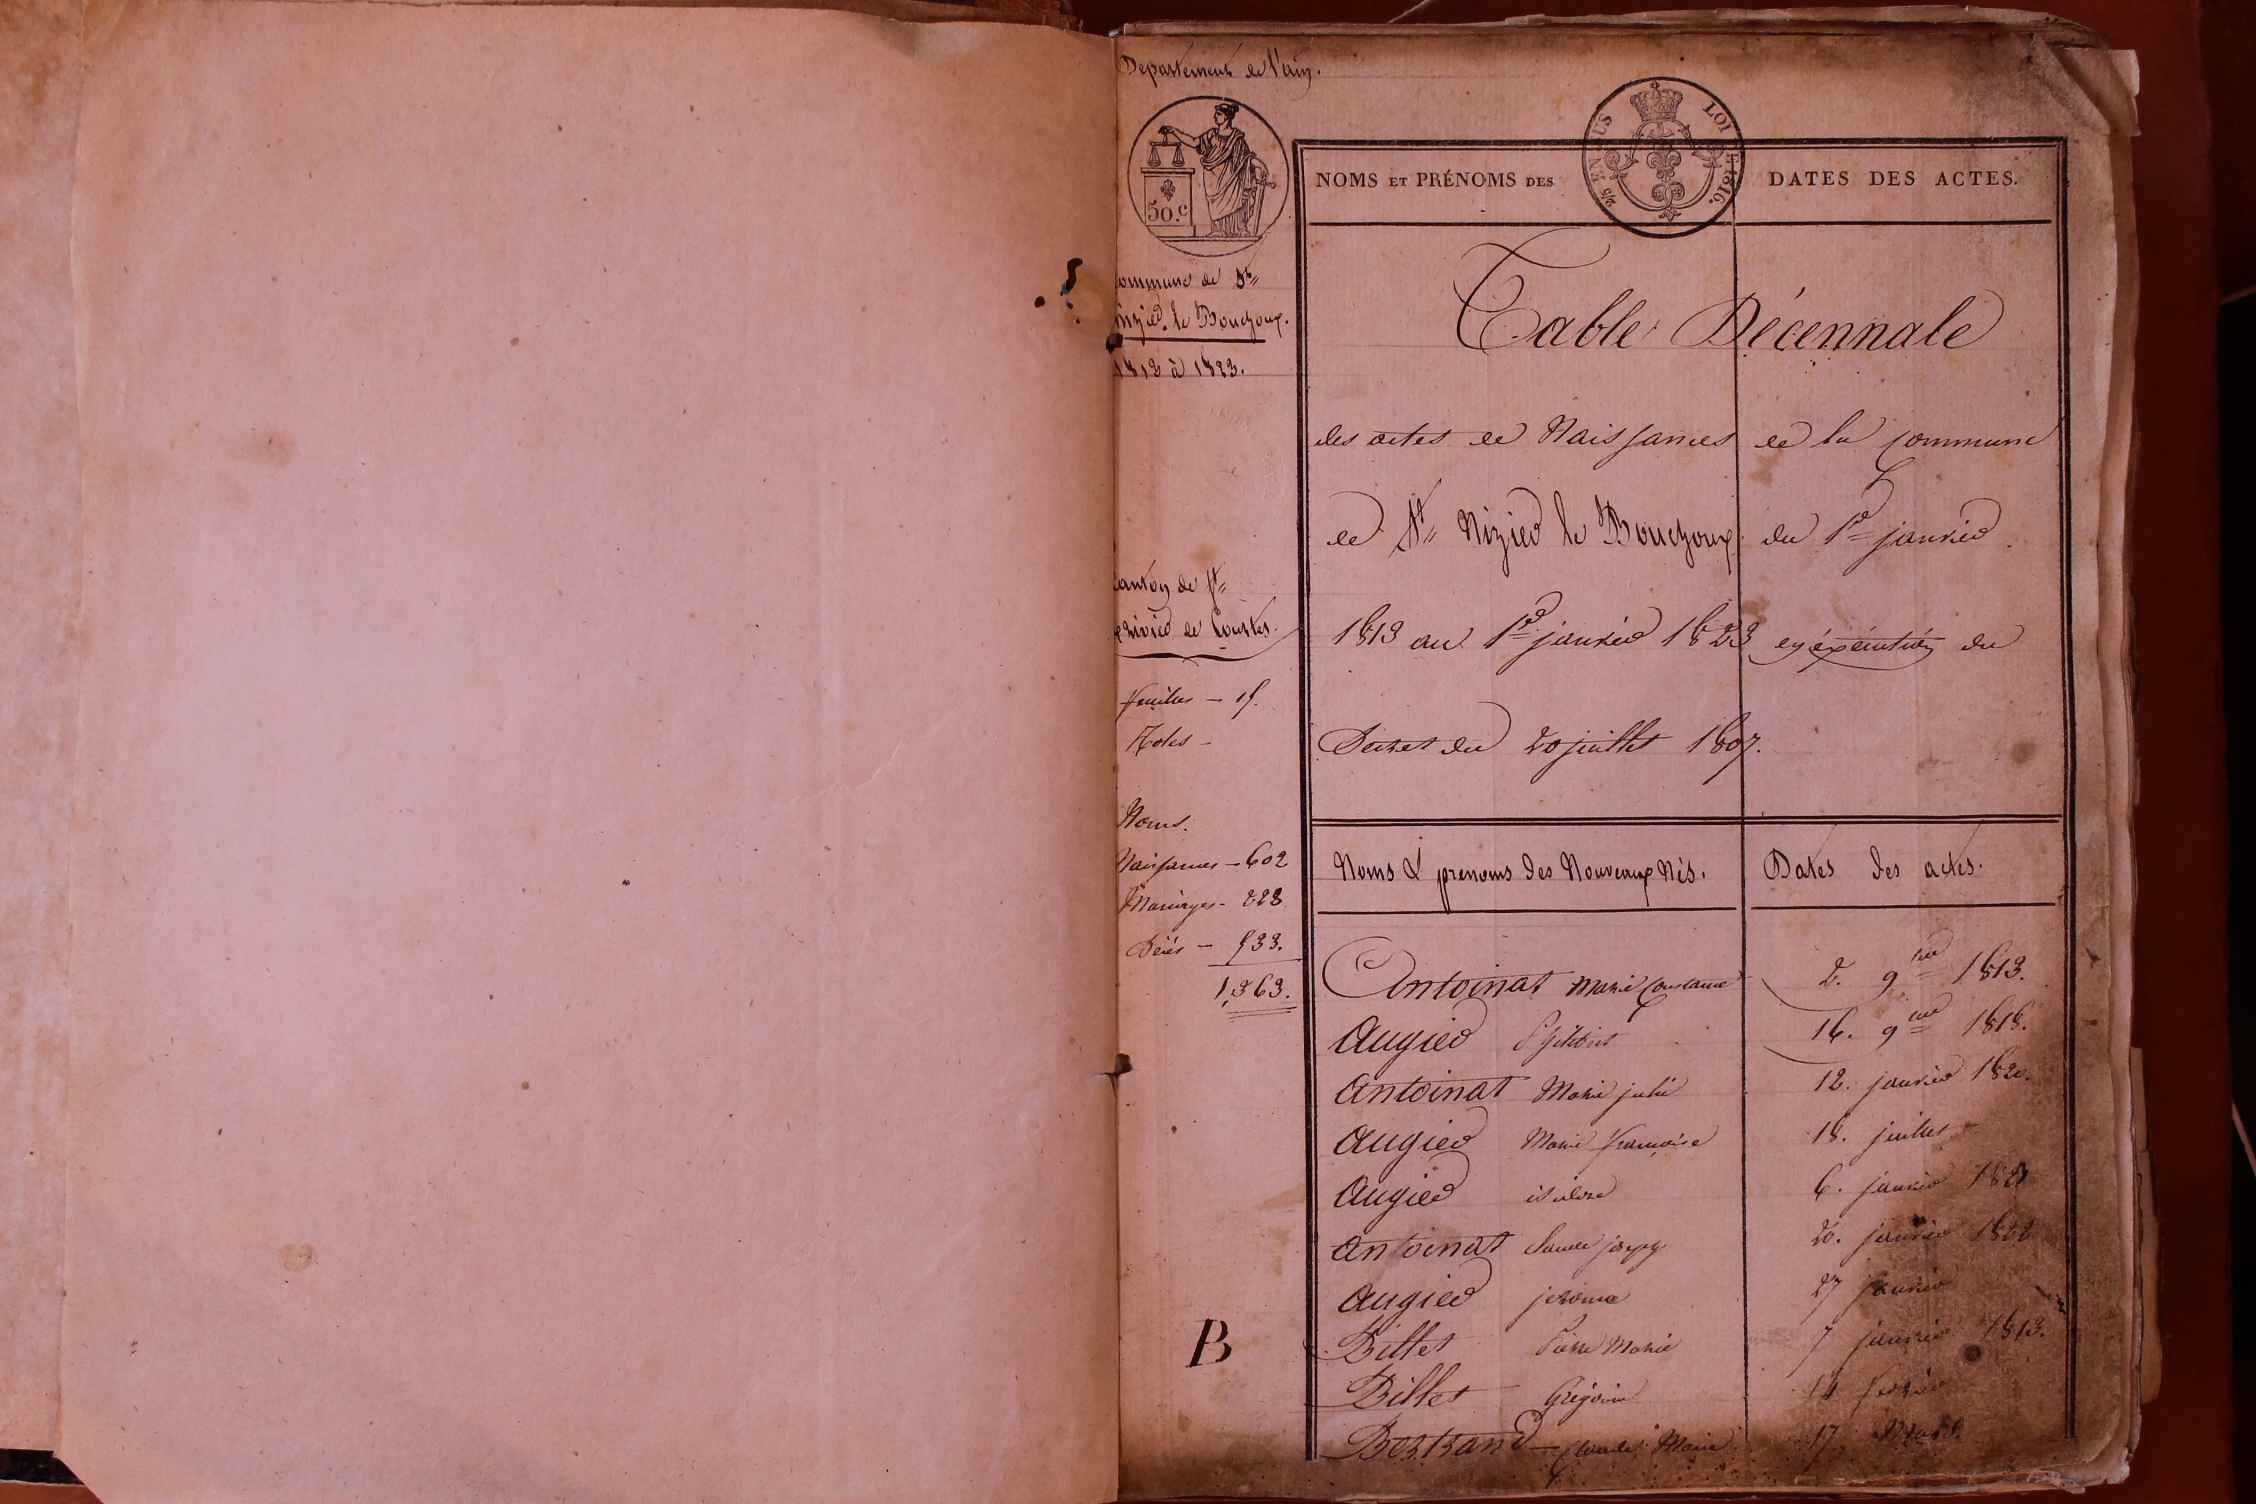 Departement de l'ain.
50.c
2/5 EN SUS
LOI DE 1816.
NOMS ET PRÉNOMS DES
DATES DES ACTES.
ommune de St
izier le Bouchoux.
1813 à 1823.
Table Décennale
des actes de Naissances de la commune
de St Nizier le Bouchoux du 1er janvier
1813 au 1er janvier 1823 en éxécution du
Décret du 20 juillet 1807.
anton de St
trivier de Courtes.
feuilles - 15.
Roles -
Noms.
Naissances - 602
Mariages - 228
Décés - 533.
1,363.
Noms & prenoms des Nouveaux Nés.
Dates des actes.
Antoinat Marie Constance 2. 9bre 1813.
Augier 16. 9bre 1818.
Antoinat Marie julie 12. janvier 1820.
Augier Marie françoise 18. juillet -
Augier isidore 6. janvier 1821
Antoinat Claude joseph 20. janvier 1822
Augier jerome 27 janvier
B
Billet Pierre Marie 7 janvier 1813.
Billet Grégoire 14 fevrier
Bertrand Claude Marie 17 Mars